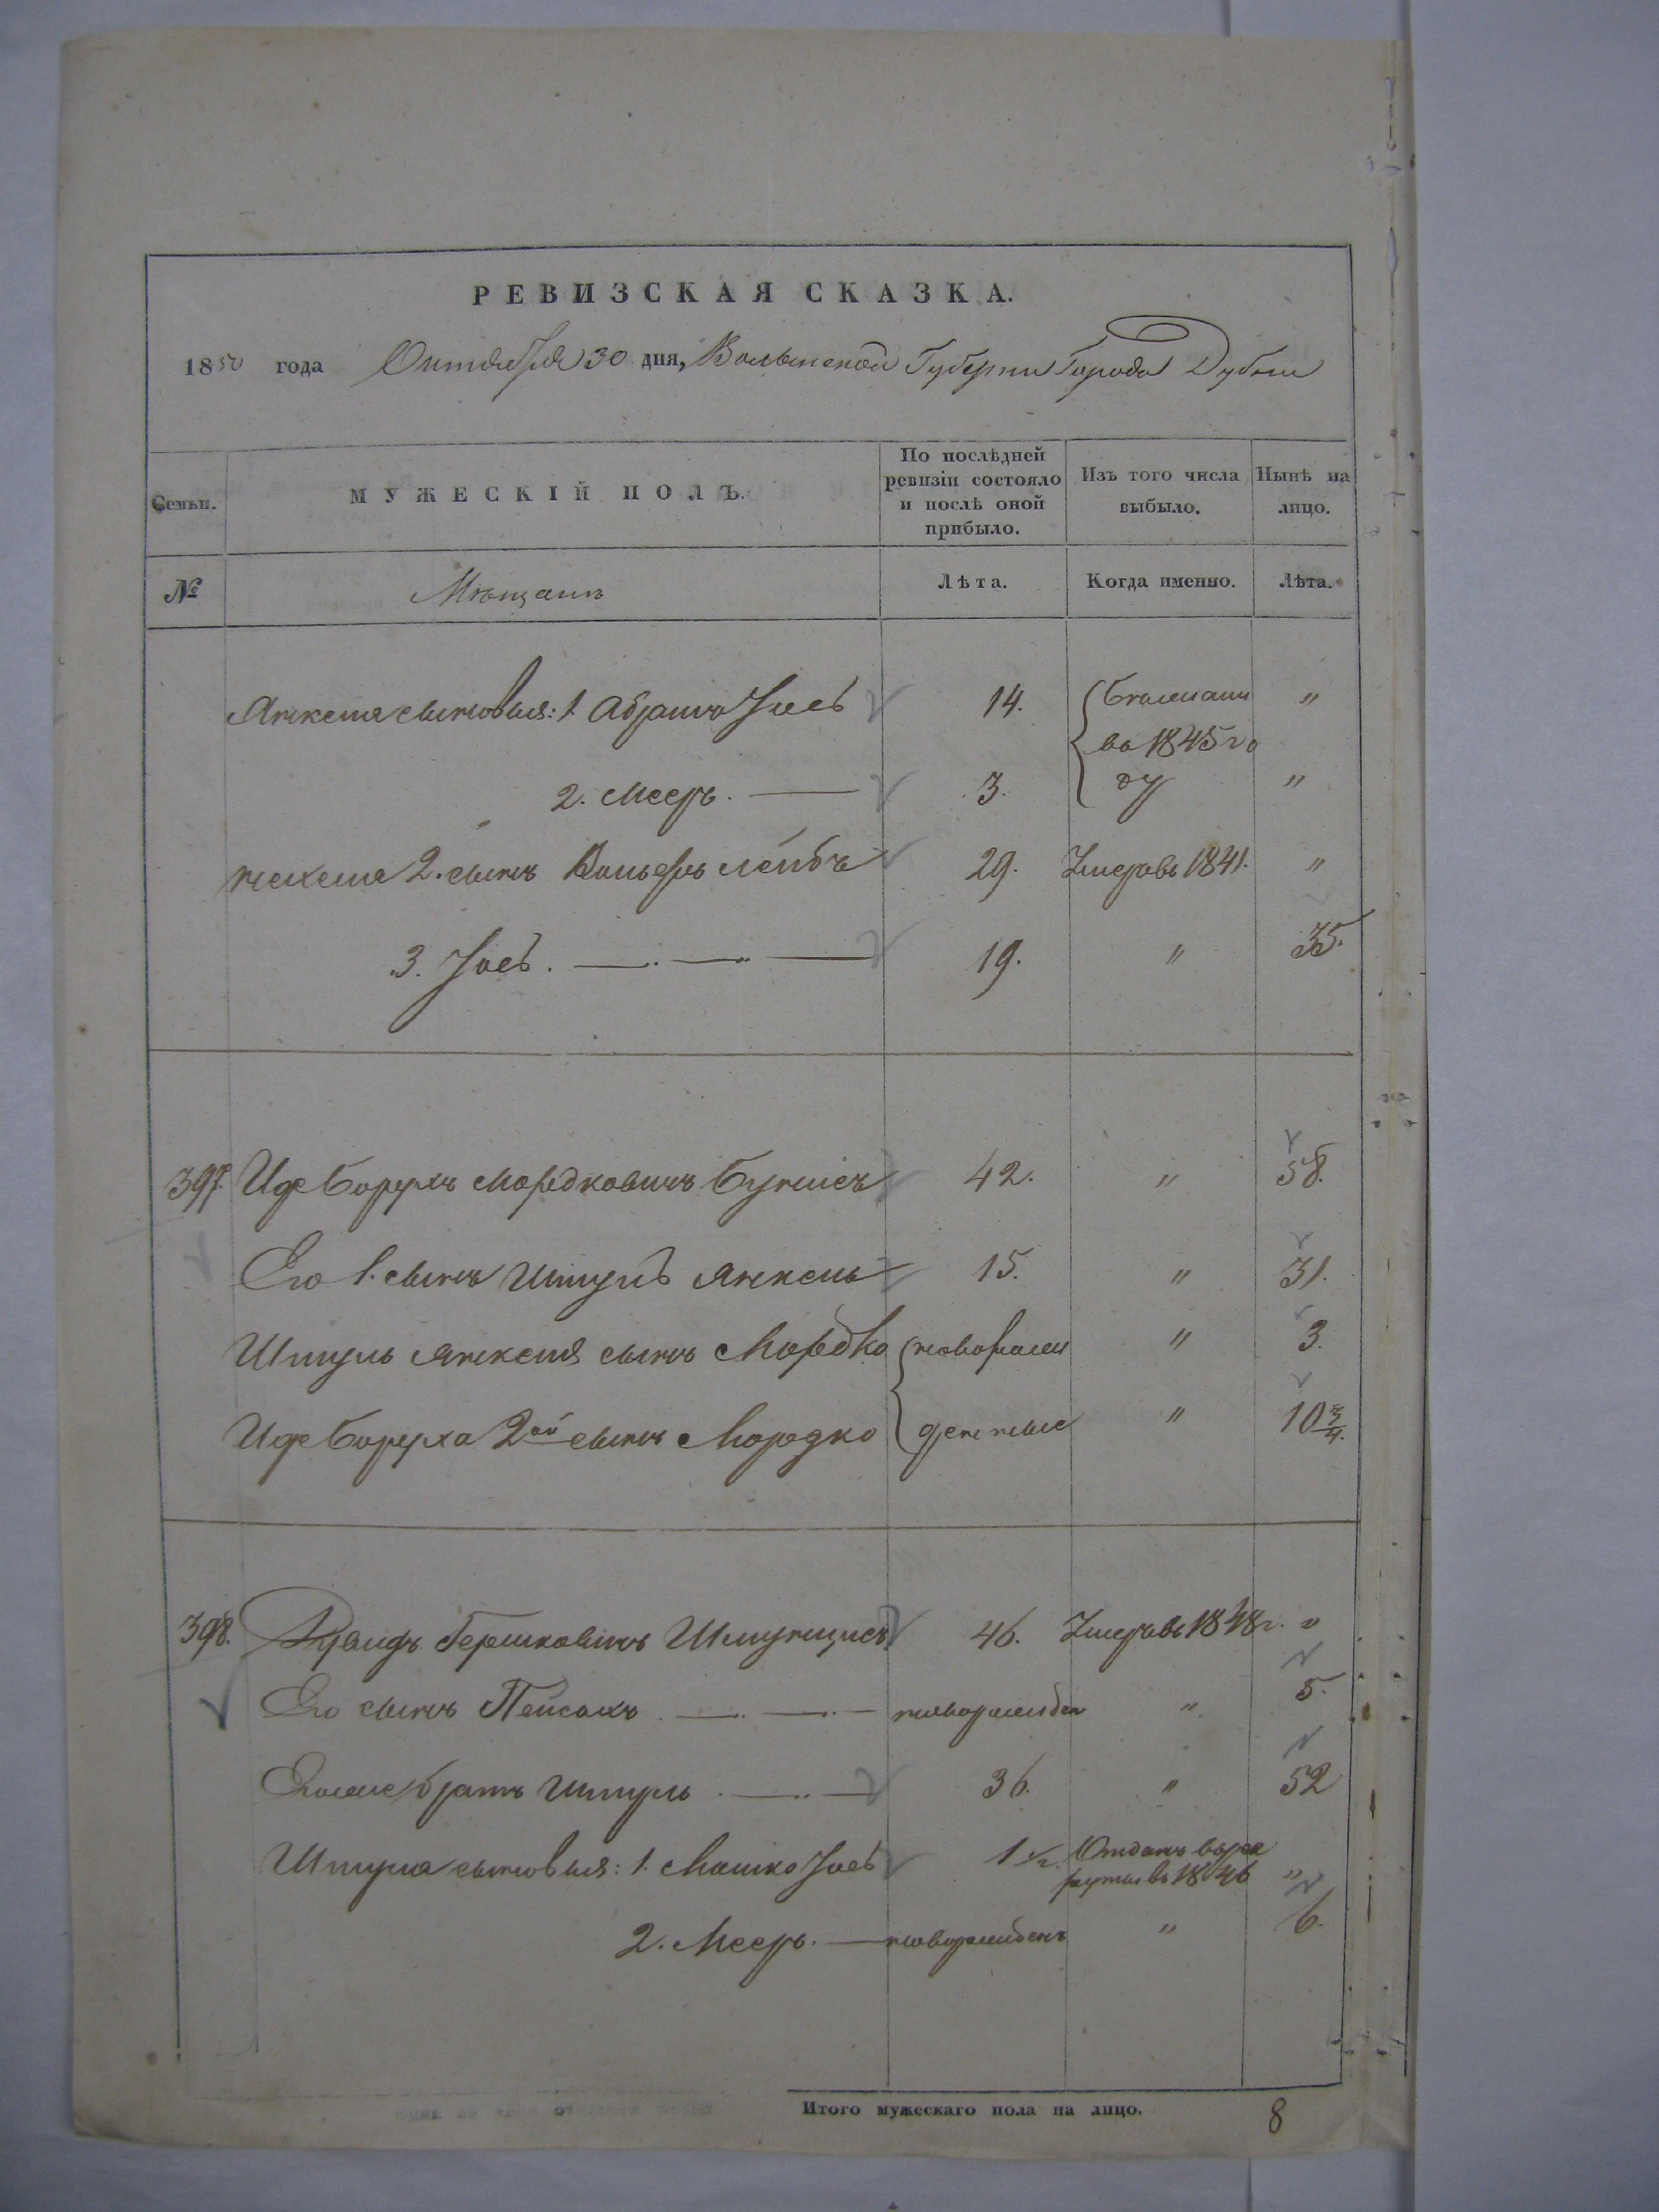 РЕВИЗСКАЯ СКАЗКА.
1850 года Октября 30 дня, Волынской Губернии Города Дубни
Семьи. МУЖЕСКІЙ ПОЛЪ. По послѣдней ревизіи состояло и послѣ оной прибыло. Изъ того числа выбыло. Нынѣ на лицо.
№ Мѣщанъ Лѣта. Когда именно. Лѣта.
Янкеля сыновья: 1. Абрамъ Іосъ 14. Бѣжали "
во 1845 го
2. Мееръ. — 3. ду "
2. сынъ Вольфъ Лейбъ 29. Умеръ въ 1841. "
3. Іосъ. — . — — 19. " 35.
397. Иф Борухъ Мордковичъ 42. " 58.
Его 1. сынъ Шмуль Янкель 15. " 31.
Шмуль Янкеля сынъ Мордко новорож " 3.
Иф Боруха 2ой сынъ Мордко денные " 10 3/4.
398. Гершковичъ 46. Умеръ въ 1848 г. "
Его сынъ Пейсахъ — . — . — новорожден " 5.
Его же братъ Шмуль . — .. — 36. " 52
Шмуля сыновья: 1. Мошко Іосъ 1 1/2. Отданъ въ рек
руты въ 1846 "
2. Мееръ. — новорожденъ " 6.
Итого мужескаго пола на лицо. 8